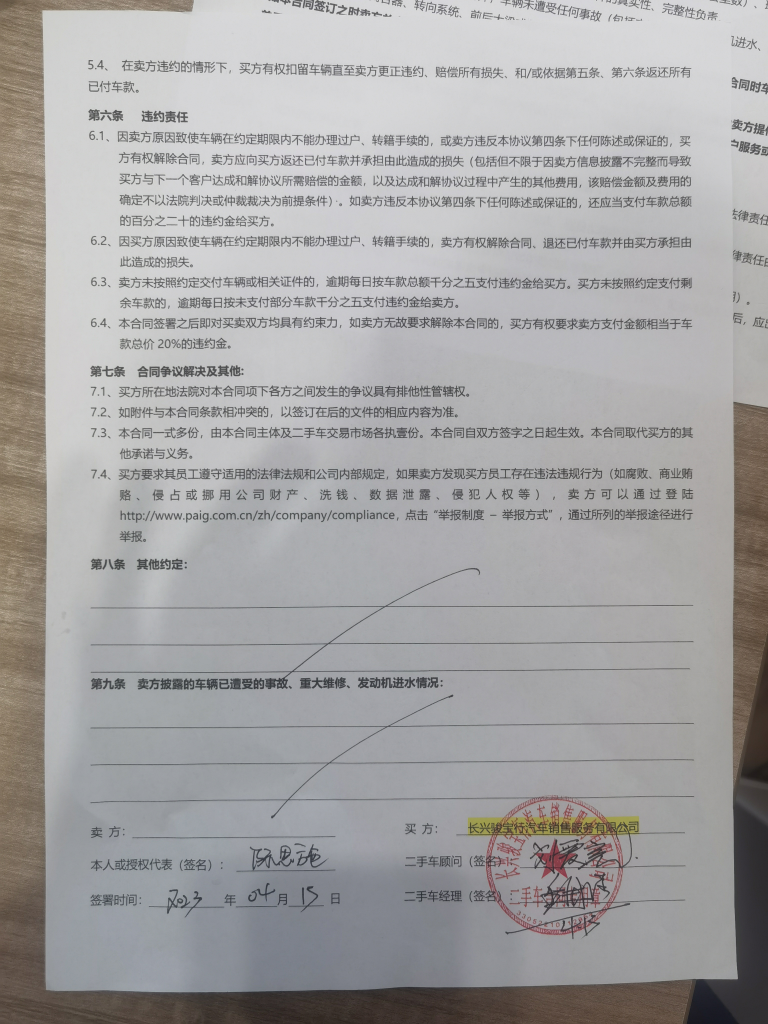 5.4、 在卖方违约的情形下，买方有权扣留车辆直至卖方更正违约、赔偿所有损失、和/或依据第五条、第六条返还所有
已付车款。
第六条 违约责任
6.1、因卖方原因致使车辆在约定期限内不能办理过户、转籍手续的，或卖方违反本协议第四条下任何陈述或保证的，买
方有权解除合同，卖方应向买方返还已付车款并承担由此造成的损失（包括但不限于因卖方信息披露不完整而导致
买方与下一个客户达成和解协议所需赔偿的金额，以及达成和解协议过程中产生的其他费用，该赔偿金额及费用的
确定不以法院判决或仲裁裁决为前提条件）。如卖方违反本协议第四条下任何陈述或保证的，还应当支付车款总额
的百分之二十的违约金给买方。
6.2、因买方原因致使车辆在约定期限内不能办理过户、转籍手续的，卖方有权解除合同、退还已付车款并由买方承担由
此造成的损失。
6.3、卖方未按照约定交付车辆或相关证件的，逾期每日按车款总额千分之五支付违约金给买方。买方未按照约定支付剩
余车款的，逾期每日按未支付部分车款千分之五支付违约金给卖方。
6.4、本合同签署之后即对买卖双方均具有约束力，如卖方无故要求解除本合同的，买方有权要求卖方支付金额相当于车
款总价 20%的违约金。
第七条 合同争议解决及其他:
7.1、买方所在地法院对本合同项下各方之间发生的争议具有排他性管辖权。
7.2、如附件与本合同条款相冲突的，以签订在后的文件的相应内容为准。
7.3、本合同一式多份，由本合同主体及二手车交易市场各执壹份。本合同自双方签字之日起生效。本合同取代买方的其
他承诺与义务。
7.4、买方要求其员工遵守适用的法律法规和公司内部规定，如果卖方发现买方员工存在违法违规行为（如腐败、商业贿
赂、侵占或挪用公司财产、洗钱、数据泄露、侵犯人权等），卖方可以通过登陆
http://www.paig.com.cn/zh/company/compliance，点击“举报制度 – 举报方式”，通过所列的举报途径进行
举报。
第八条 其他约定：
第九条 卖方披露的车辆已遭受的事故、重大维修、发动机进水情况：
卖 方：
买 方： 长兴骏宝行汽车销售服务有限公司
本人或授权代表（签名）：
二手车顾问（签名）
签署时间： 2023 年 04 月 15 日
二手车经理（签名）